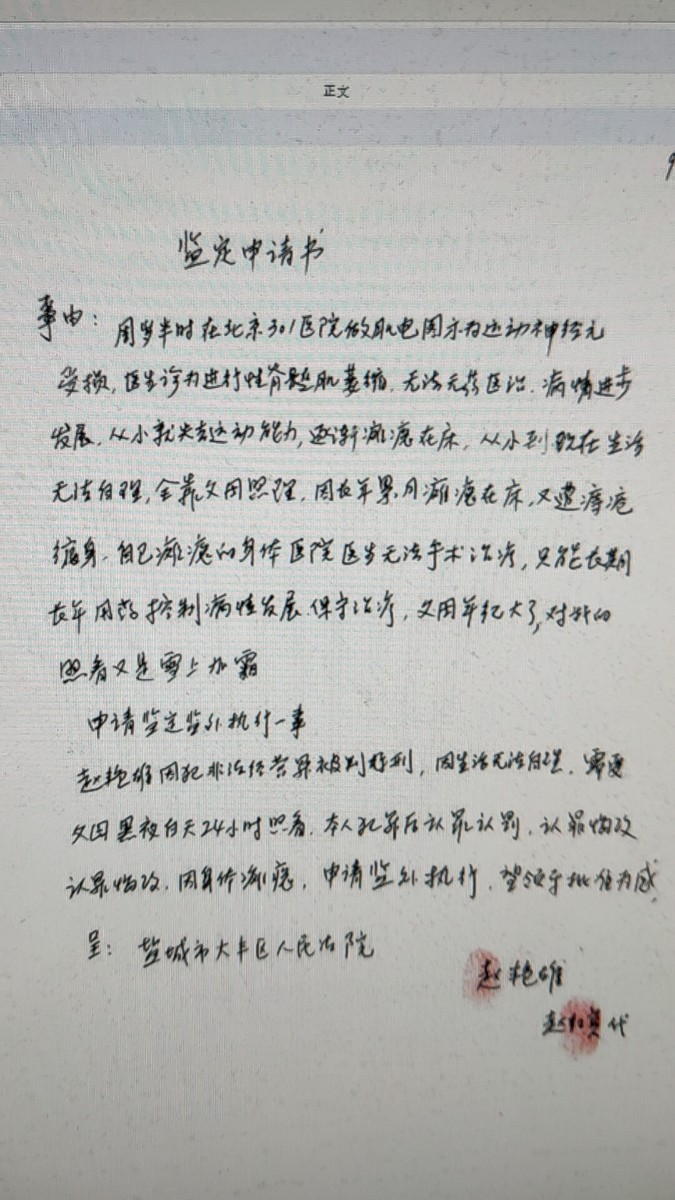 正文
9
监定申请书
事由：周岁半时在北京301医院做肌电图示为运动神经元
受损，医生诊为进行性脊髓肌萎缩．无法无药医治．病情进步
发展．从小就失去运动能力，逐渐瘫痪在床．从小到现在生活
无法自理，全靠父母照理．因长年累月瘫痪在床，又遭痔疮
缠身．自己瘫痪的身体医院医生无法手术治疗，只能长期
长年用药控制病性发展．保守治疗，父母年纪大了，对我的
照看又是雪上加霜
申请监定监外执行一事
赵艳雄因犯非法经营罪被判 刑，因生活无法自理．需要
父母黑夜白天24小时照看．本人犯罪后认罪认罚．认罪悔改
认罪悔改．因身体瘫痪，申请监外执行．望 予批 为感
呈：盐城市大丰区人民法院
赵艳雄
赵 代